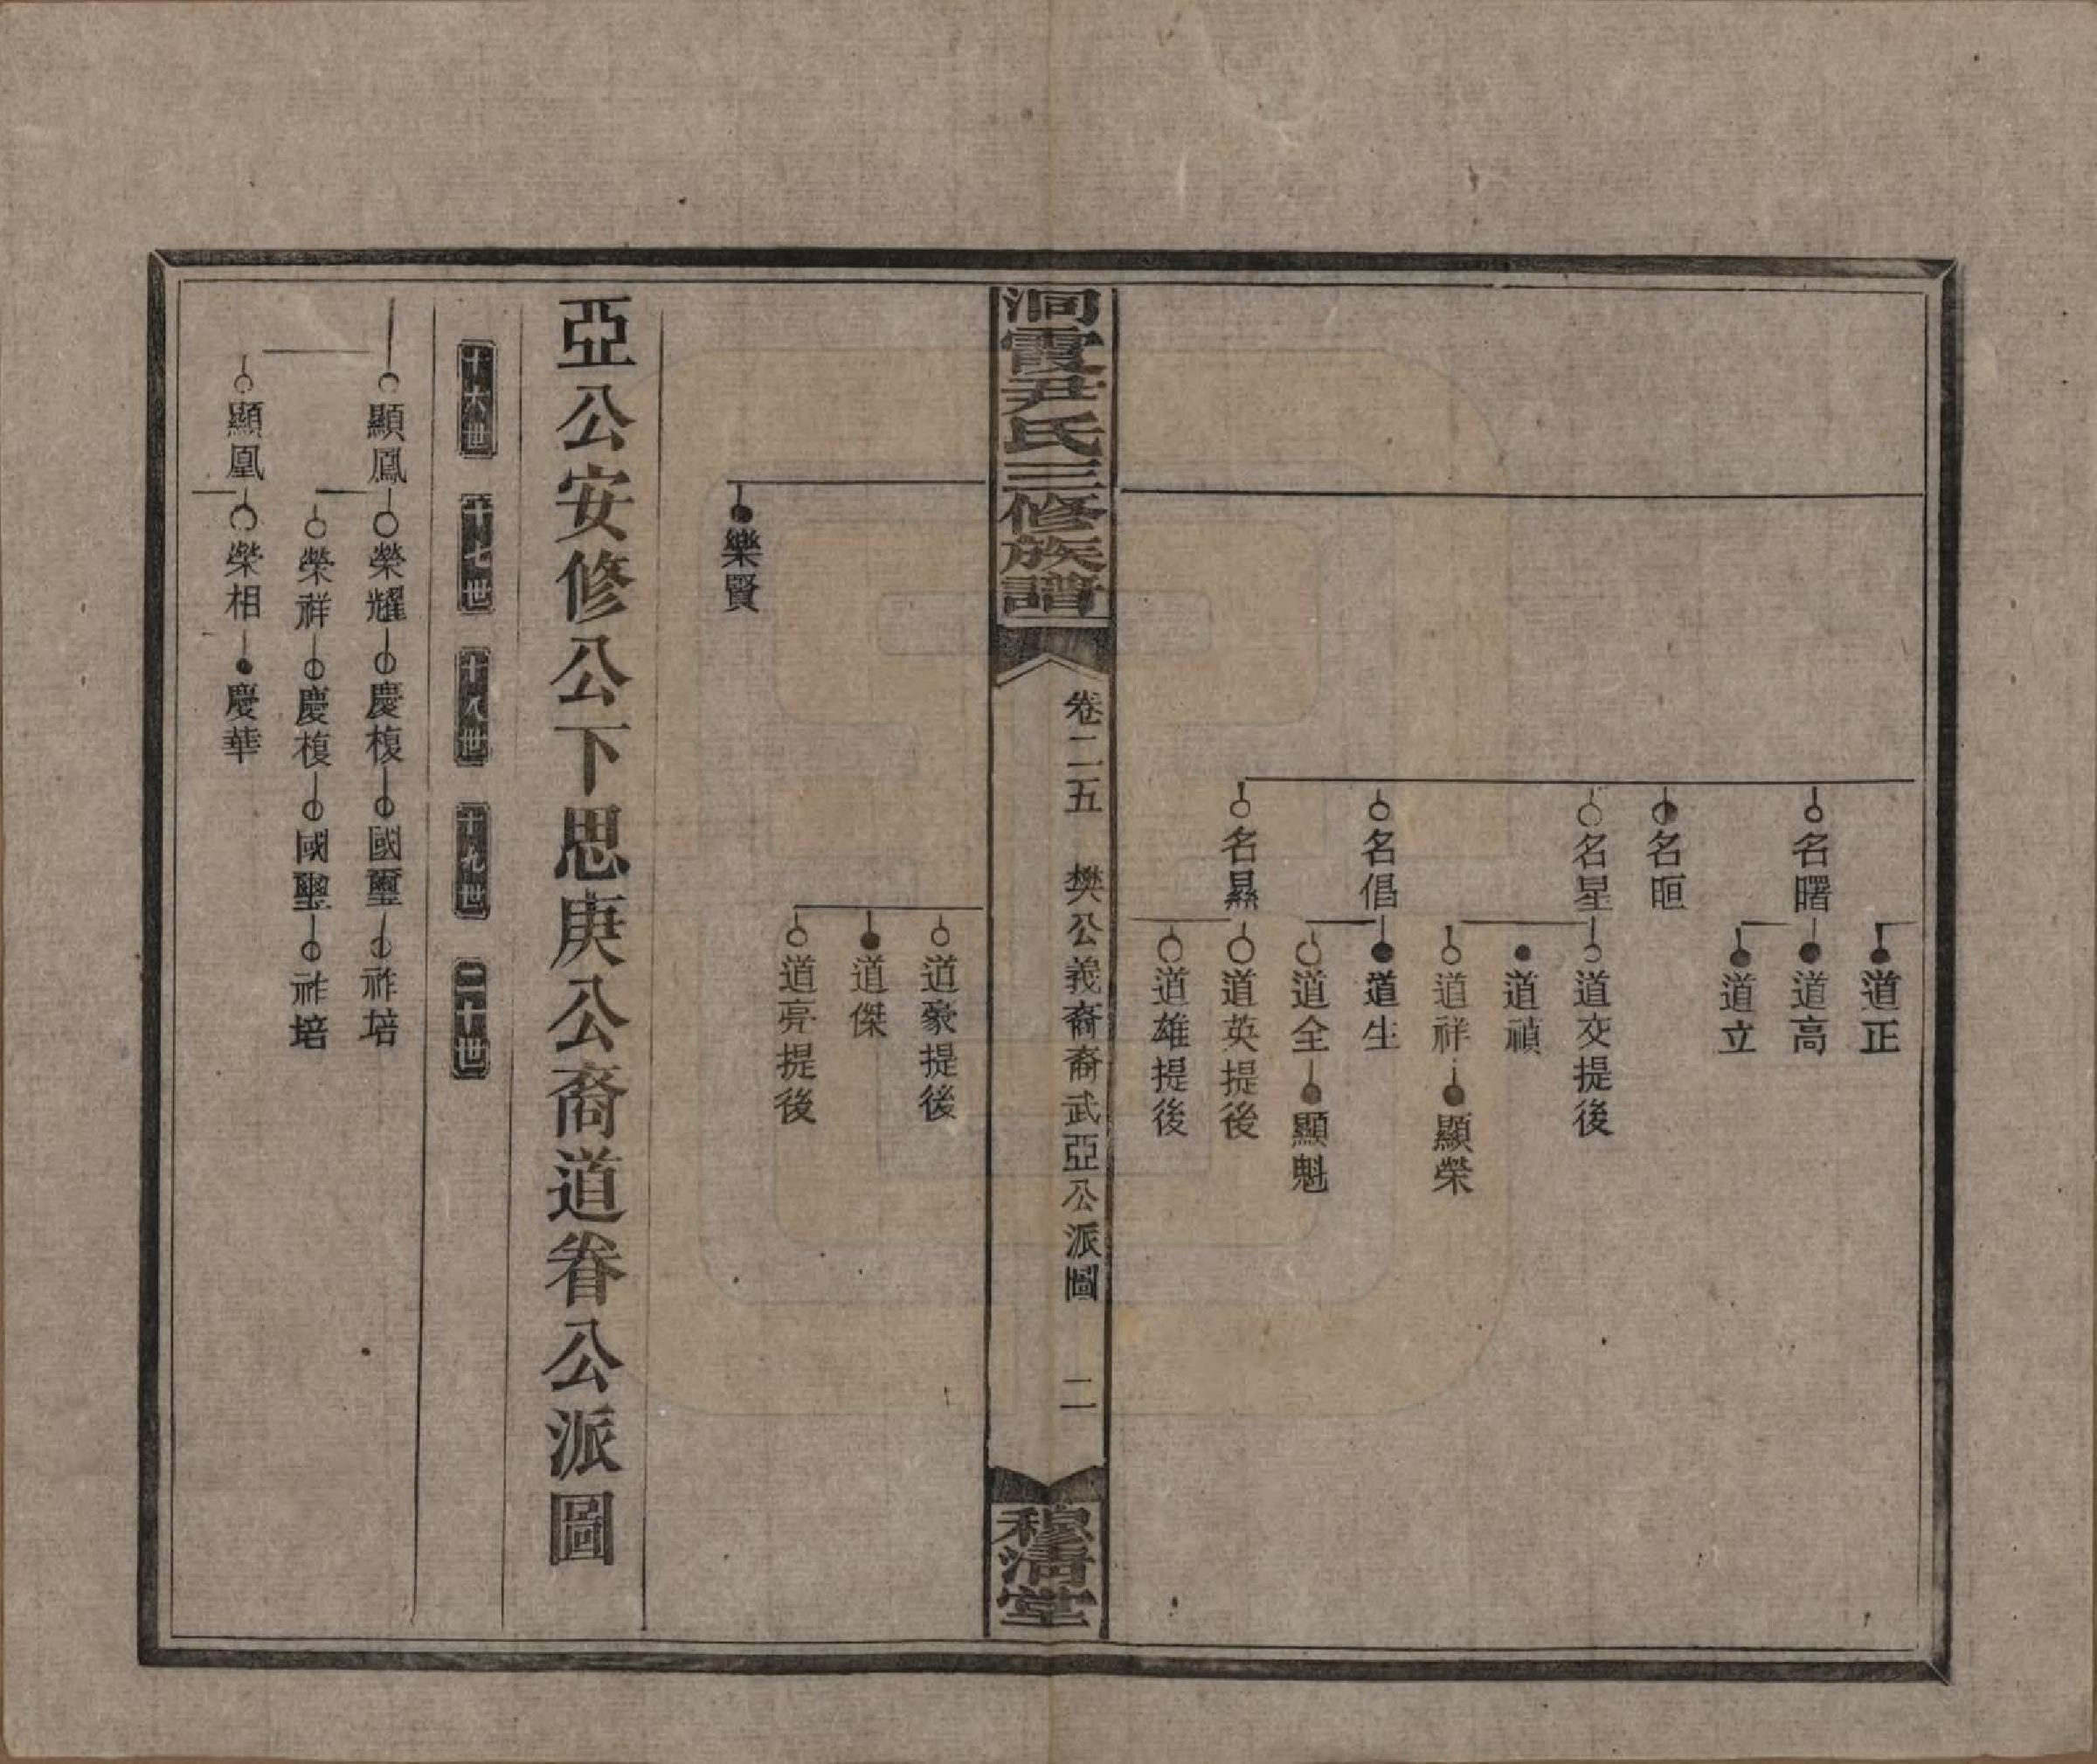 道正
名曙
道高
道立
名晅
名星
道交提後
道禎
道祥
顯榮
名倡
道生
道全
顯魁
道英提後
道雄提後
洞霞尹氏三修族譜
卷二五 樊公義裔裔武亞公派圖 二
穆清堂
道豪提後
道傑
道亮提後
樂賢
亞公安修公下思庚公裔道眷公派圖
十六世 十七世 十八世 十九世 二十世
顯鳳 榮耀 慶椱 國璽 祚培
榮祥 慶椱 國璽 祚培
顯凰 榮相 慶華